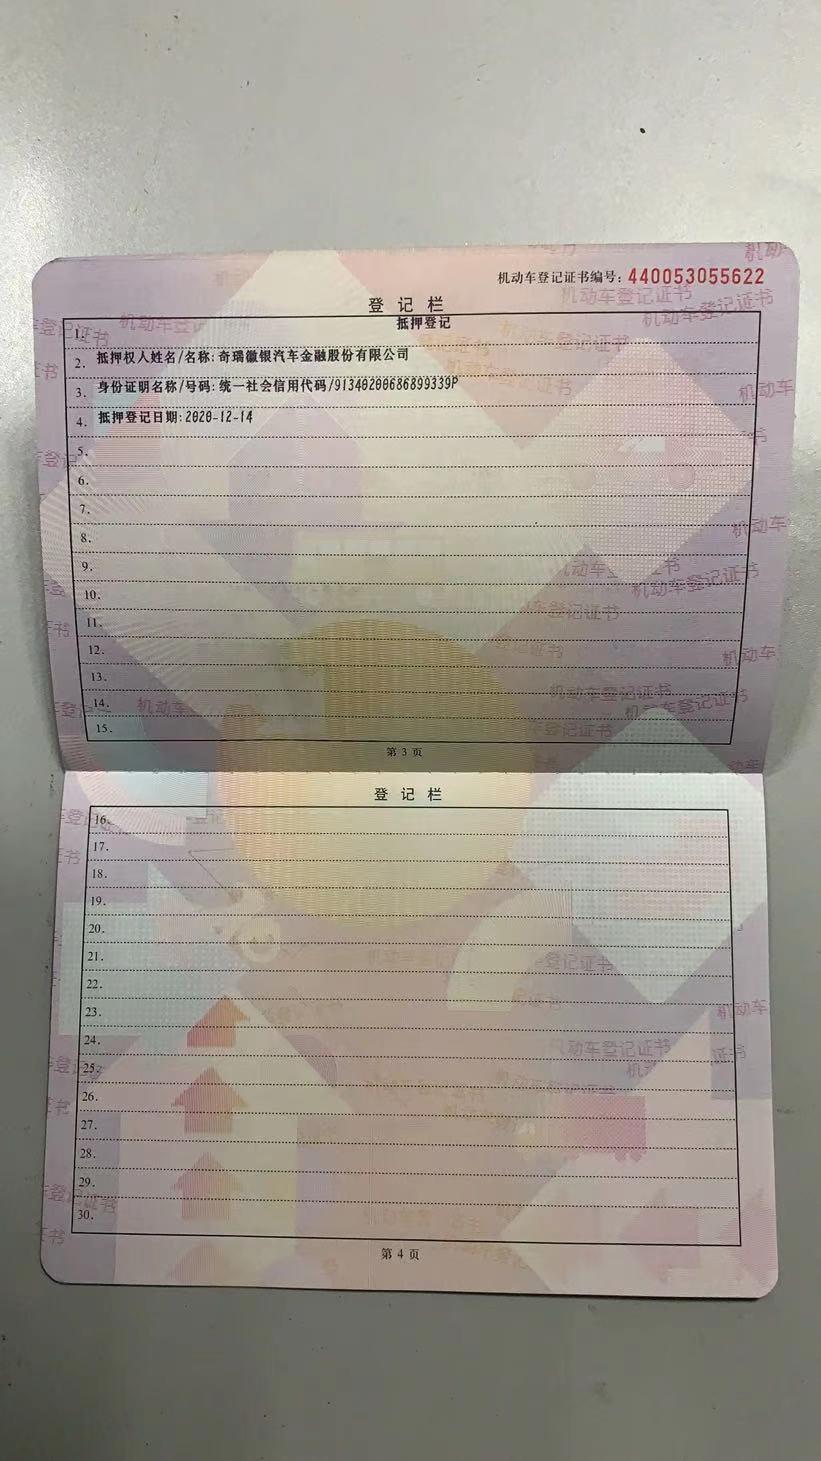 机动车登记证书编号：440053055622
登记栏
1. 抵押登记
2. 抵押权人姓名/名称：奇瑞徽银汽车金融股份有限公司
3. 身份证明名称/号码：统一社会信用代码/91340200686899339P
4. 抵押登记日期：2020-12-14
5.
6.
7.
8.
9.
10.
11.
12.
13.
14.
15.
第 3 页
登记栏
16.
17.
18.
19.
20.
21.
22.
23.
24.
25.
26.
27.
28.
29.
30.
第 4 页